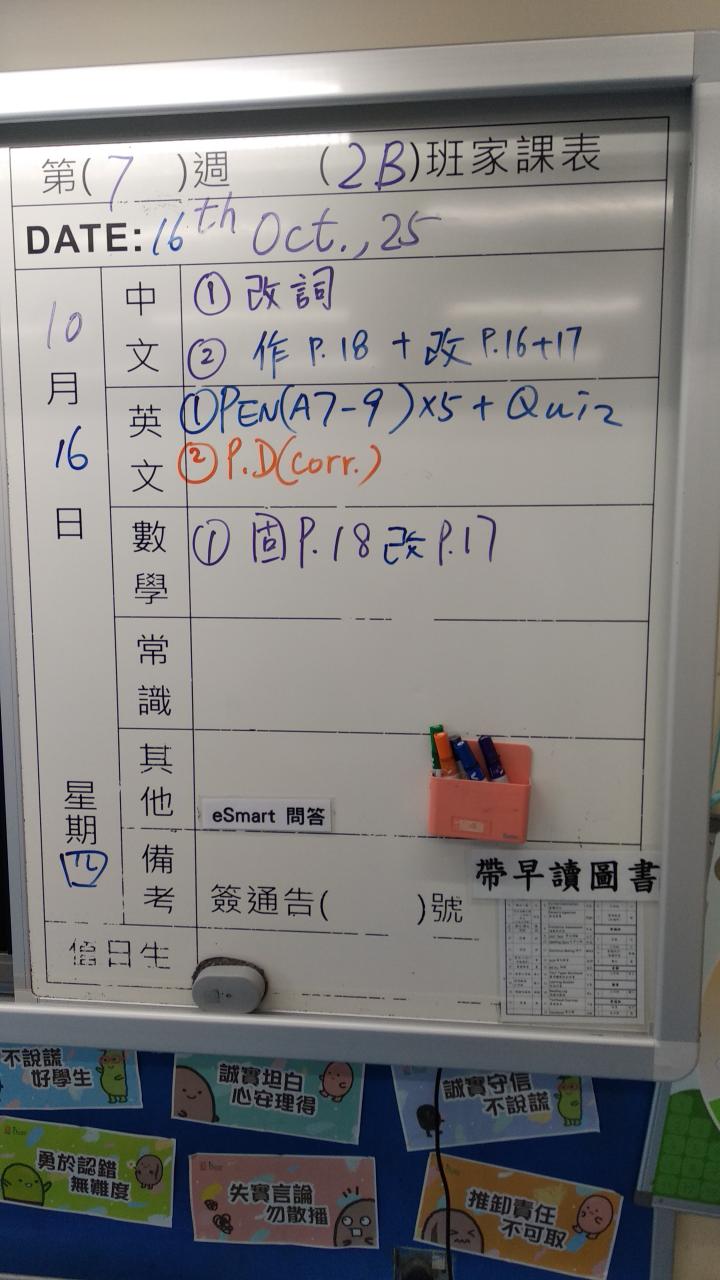 第(7)週 (2B)班家課表
DATE: 16th Oct., 25
10月16日 星期四
中文
① 改詞
② 作 P.18 + 改 P.16+17
英文
① PEN(A7-9)x5 + Quiz
② P.D(corr.)
數學
① 固 P.18 改 P.17
常識
其他
eSmart 問答
備考
簽通告( )號
帶早讀圖書
值日生
不說謊
好學生
誠實坦白
心安理得
誠實守信
不說謊
勇於認錯
無難度
失實言論
勿散播
推卸責任
不可取